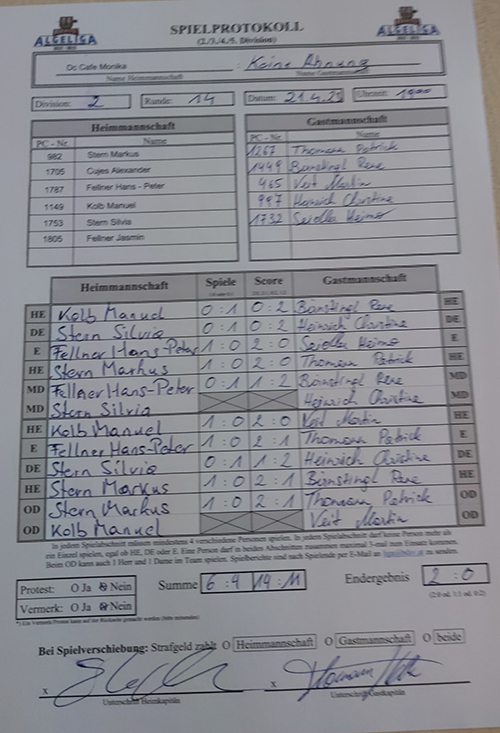 ALGELIGA
SPIELPROTOKOLL
ALGELIGA
(2./3./4./5. Division)
Dc Cafe Monika : Keine Ahnung
Name Heimmannschaft Name Gastmannschaft
Division: 2 Runde: 14 Datum: 21.4.23 Uhrzeit: 19⁰⁰
Heimmannschaft Gastmannschaft
PC - Nr. Name PC - Nr. Name
982 Stern Markus 1267 Thomann Patrick
1705 Cujes Alexander 1449 Bärnstingl Rene
1787 Fellner Hans - Peter 465 Veit Martin
1149 Kolb Manuel 997 Heinrich Christine
1753 Stern Silvia 1732 Seidler Heimo
1805 Fellner Jasmin
Heimmannschaft Spiele Score Gastmannschaft
HE Kolb Manuel 0:1 0:2 Bärnstingl Rene HE
DE Stern Silvia 0:1 0:2 Heinrich Christine DE
E Fellner Hans-Peter 1:0 2:0 Seidler Heimo E
HE Stern Markus 1:0 2:0 Thomann Patrick HE
MD Fellner Hans-Peter 0:1 1:2 Bärnstingl Rene MD
MD Stern Silvia Heinrich Christine MD
HE Kolb Manuel 1:0 2:0 Veit Martin HE
E Fellner Hans-Peter 1:0 2:1 Thomann Patrick E
DE Stern Silvia 0:1 1:2 Heinrich Christine DE
HE Stern Markus 1:0 2:1 Bärnstingl Rene HE
OD Stern Markus 1:0 2:1 Thomann Patrick OD
OD Kolb Manuel Veit Martin OD
In jedem Spielabschnitt müssen mindestens 4 verschiedene Personen spielen. In jedem Spielabschnitt darf keine Person mehr als
ein Einzel spielen, egal ob HE, DE oder E. Eine Person darf in beiden Abschnitten zusammen maximal 3-mal zum Einsatz kommen.
Beim OD kann auch 1 Herr und 1 Dame im Team spielen. Spielberichte sind nach Spielende per E-Mail an zu senden.
Protest: O Ja O Nein Summe 6:4 14:11 Endergebnis 2:0
Vermerk: O Ja O Nein (2:0 od. 1:1 od. 0:2)
Bei Spielverschiebung: Strafgeld zahlt O Heimmannschaft O Gastmannschaft O beide
x x
Unterschrift Heimkapitän Unterschrift Gastkapitän